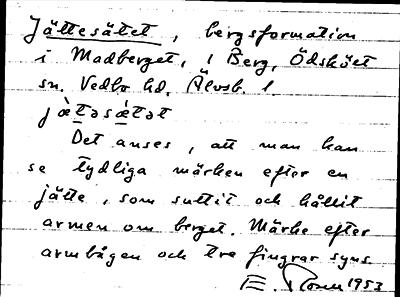 Jättesätet, bergsformation
i Madberget, i Berg, Ödsköet
sn. Vedbo hd, Älvsb. l.
jä̀təsä́tət
Det anses, att man kan
se tydliga märken efter en
jätte, som suttit och hållit
armen om berget. Märke efter
armbågen och tre fingrar syns
E. 1953